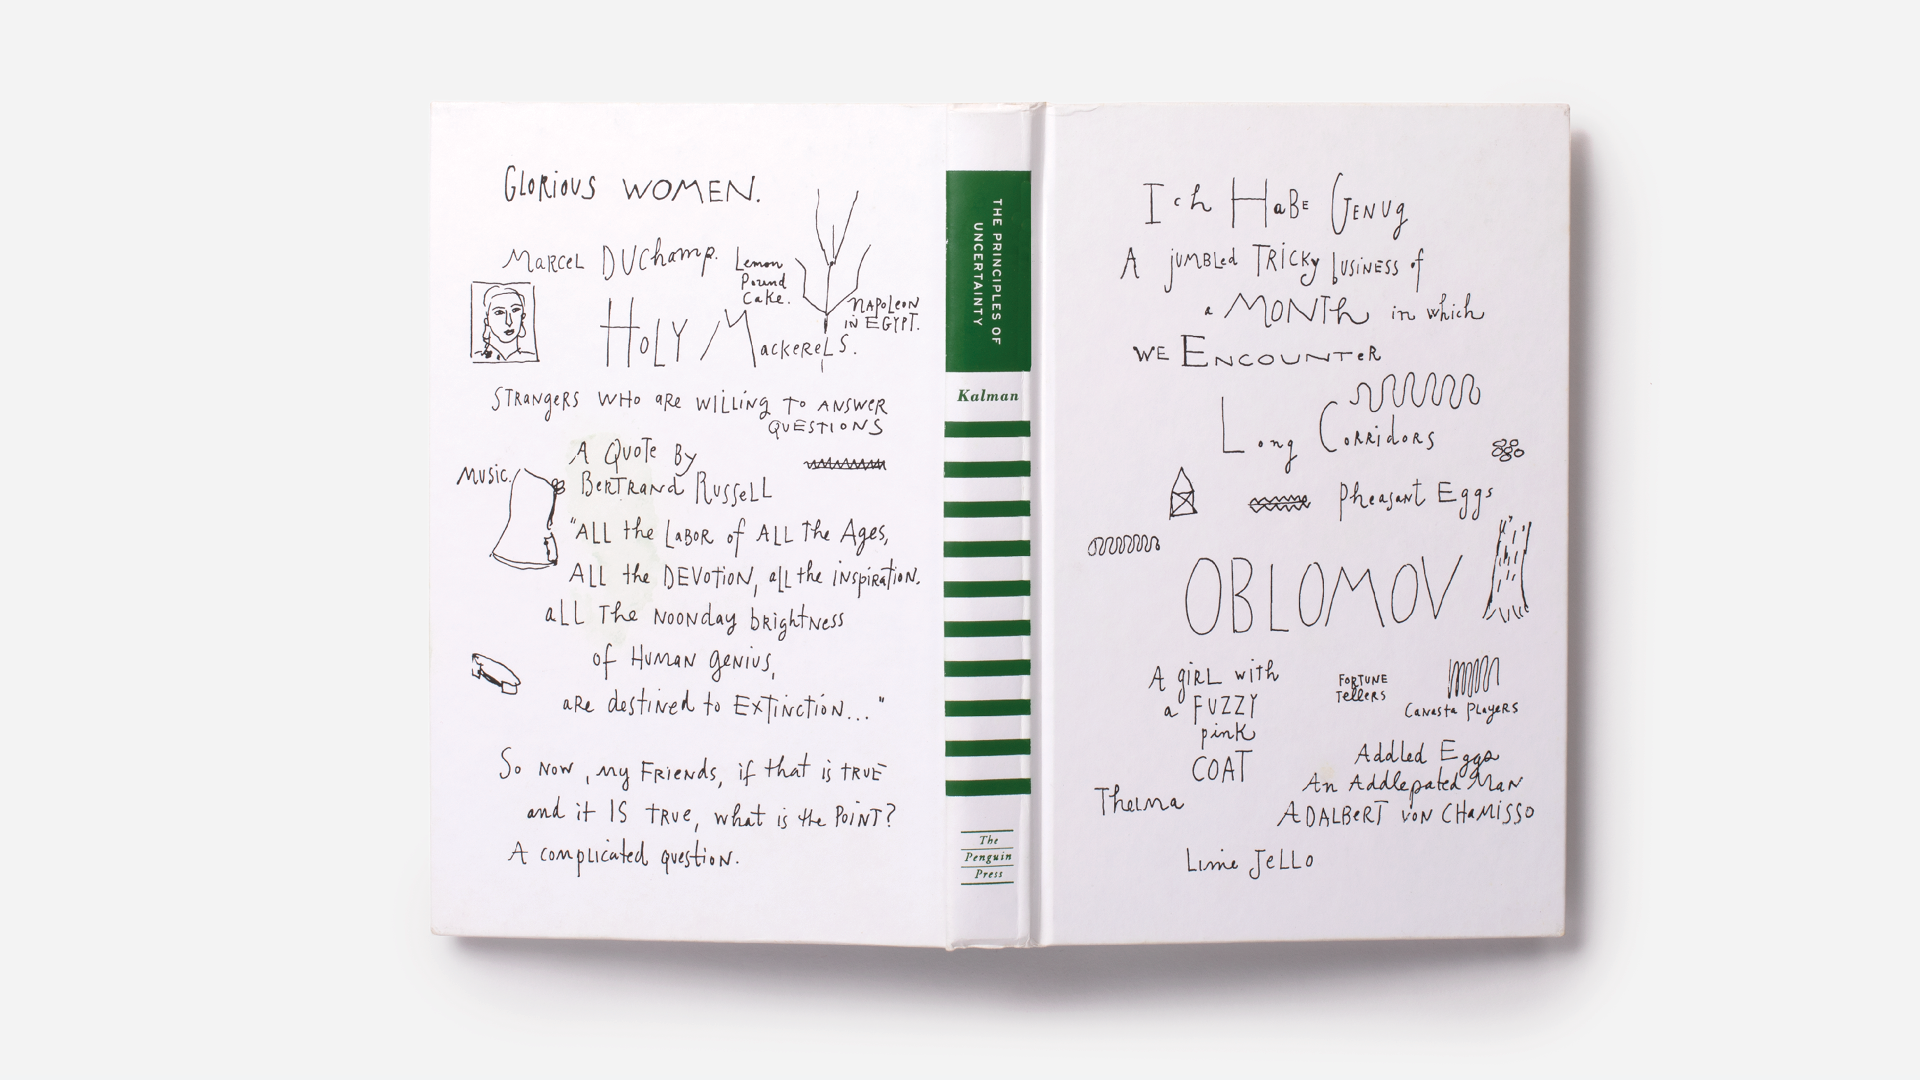 GLORIOUS WOMEN.
MARCEL DUChamp.
Lemon
Pound
Cake.
NAPOLEON
iN EGYPT.
HOLY MACKERELS.
STRANGERS WHO ARE WILLING TO ANSWER
QUESTIONS
A Quote By
Music.
BERTRAND RUSSELL
"ALL the LABOR of ALL the Ages,
ALL the DEVOTION, all the inspiration.
all The NOONday brightNess
of HUMAN genius,
are destined to EXTinction..."
So now, my Friends, if that is TRUE
and it IS TRUE, what is the POINT?
A complicated question.
THE PRINCIPLES OF
UNCERTAINTY
Kalman
The
Penguin
Press
Ich HaBE GENUg
A jUMBLed TRICKy bUSINESS of
a MONTh in which
WE ENCOUNTER
Long CORRIDORS
Pheasant Eggs
OBLOMOV
A giRL with
a FUZZY
pink
COAT
FORTUNE
Tellers
Canasta Players
Addled Eggs
An Addlepated Man
ADALBERT von CHaMISSO
Thelma
Lime JELLO